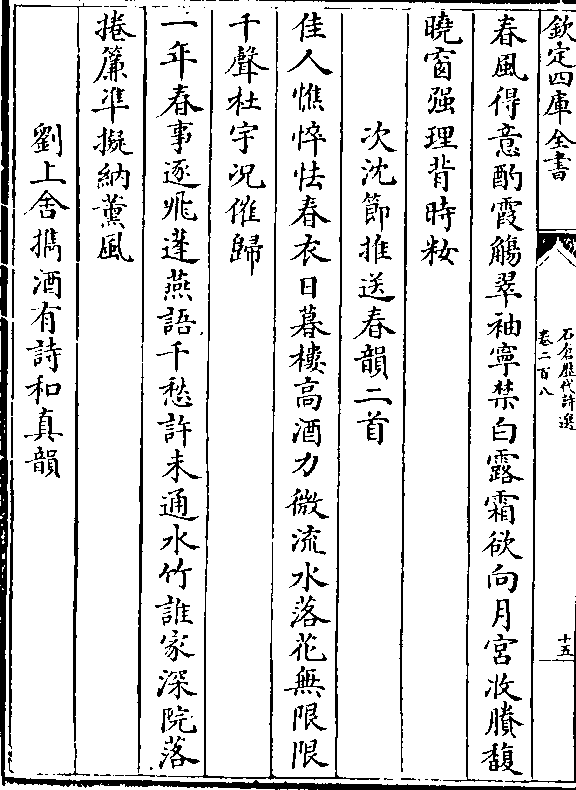 欽定四庫全書
石倉歷代詩選
卷二百八
十五
春風得意酌霞觴翠袖寧禁白露霜欲向月宮收賸馥
曉窗强理背時粧
次沈節推送春韻二首
佳人憔悴怯春衣日暮樓高酒力微流水落花無限限
千聲杜宇况催歸
一年春事逐飛蓬燕語千愁許未通水竹誰家深院落
捲簾凖擬納薰風
劉上舍攜酒有詩和真韻